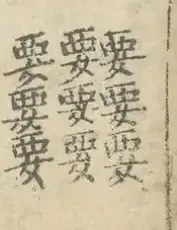 要要要
要要要
要要要